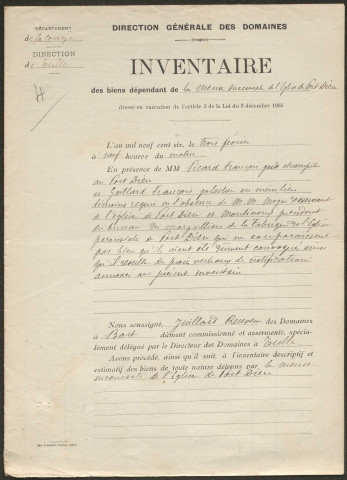 DÉPARTEMENT
de la Corrèze
DIRECTION
de Tulle
DIRECTION GÉNÉRALE DES DOMAINES
INVENTAIRE
des biens dépendant de la mense succursale de l'Église de Port Dieu
dressé en exécution de l'article 3 de la Loi du 9 décembre 1905
L'an mil neuf cent six, le trois février
à neuf heures du matin
En présence de MM Picard François garde champêtre
au Port Dieu
et Gaillard François
témoins requis en l'absence de M. M. desservant
de l'église de Port Dieu et président
du bureau des marguilliers de la fabrique de l'église
paroissiale de Port Dieu qui ne comparaissent
pas bien qu'ils aient été dûment convoqués ainsi
qu'il résulte des procès verbaux de notification
annexés au présent inventaire
Nous soussigné, Juillard Receveur des Domaines
à Bort dûment commissionné et assermenté, spécia-
lement délégué par le Directeur des Domaines à Tulle
Avons procédé, ainsi qu'il suit, à l'inventaire descriptif et
estimatif des biens de toute nature détenus par la mense
succursale de l'Église de Port Dieu